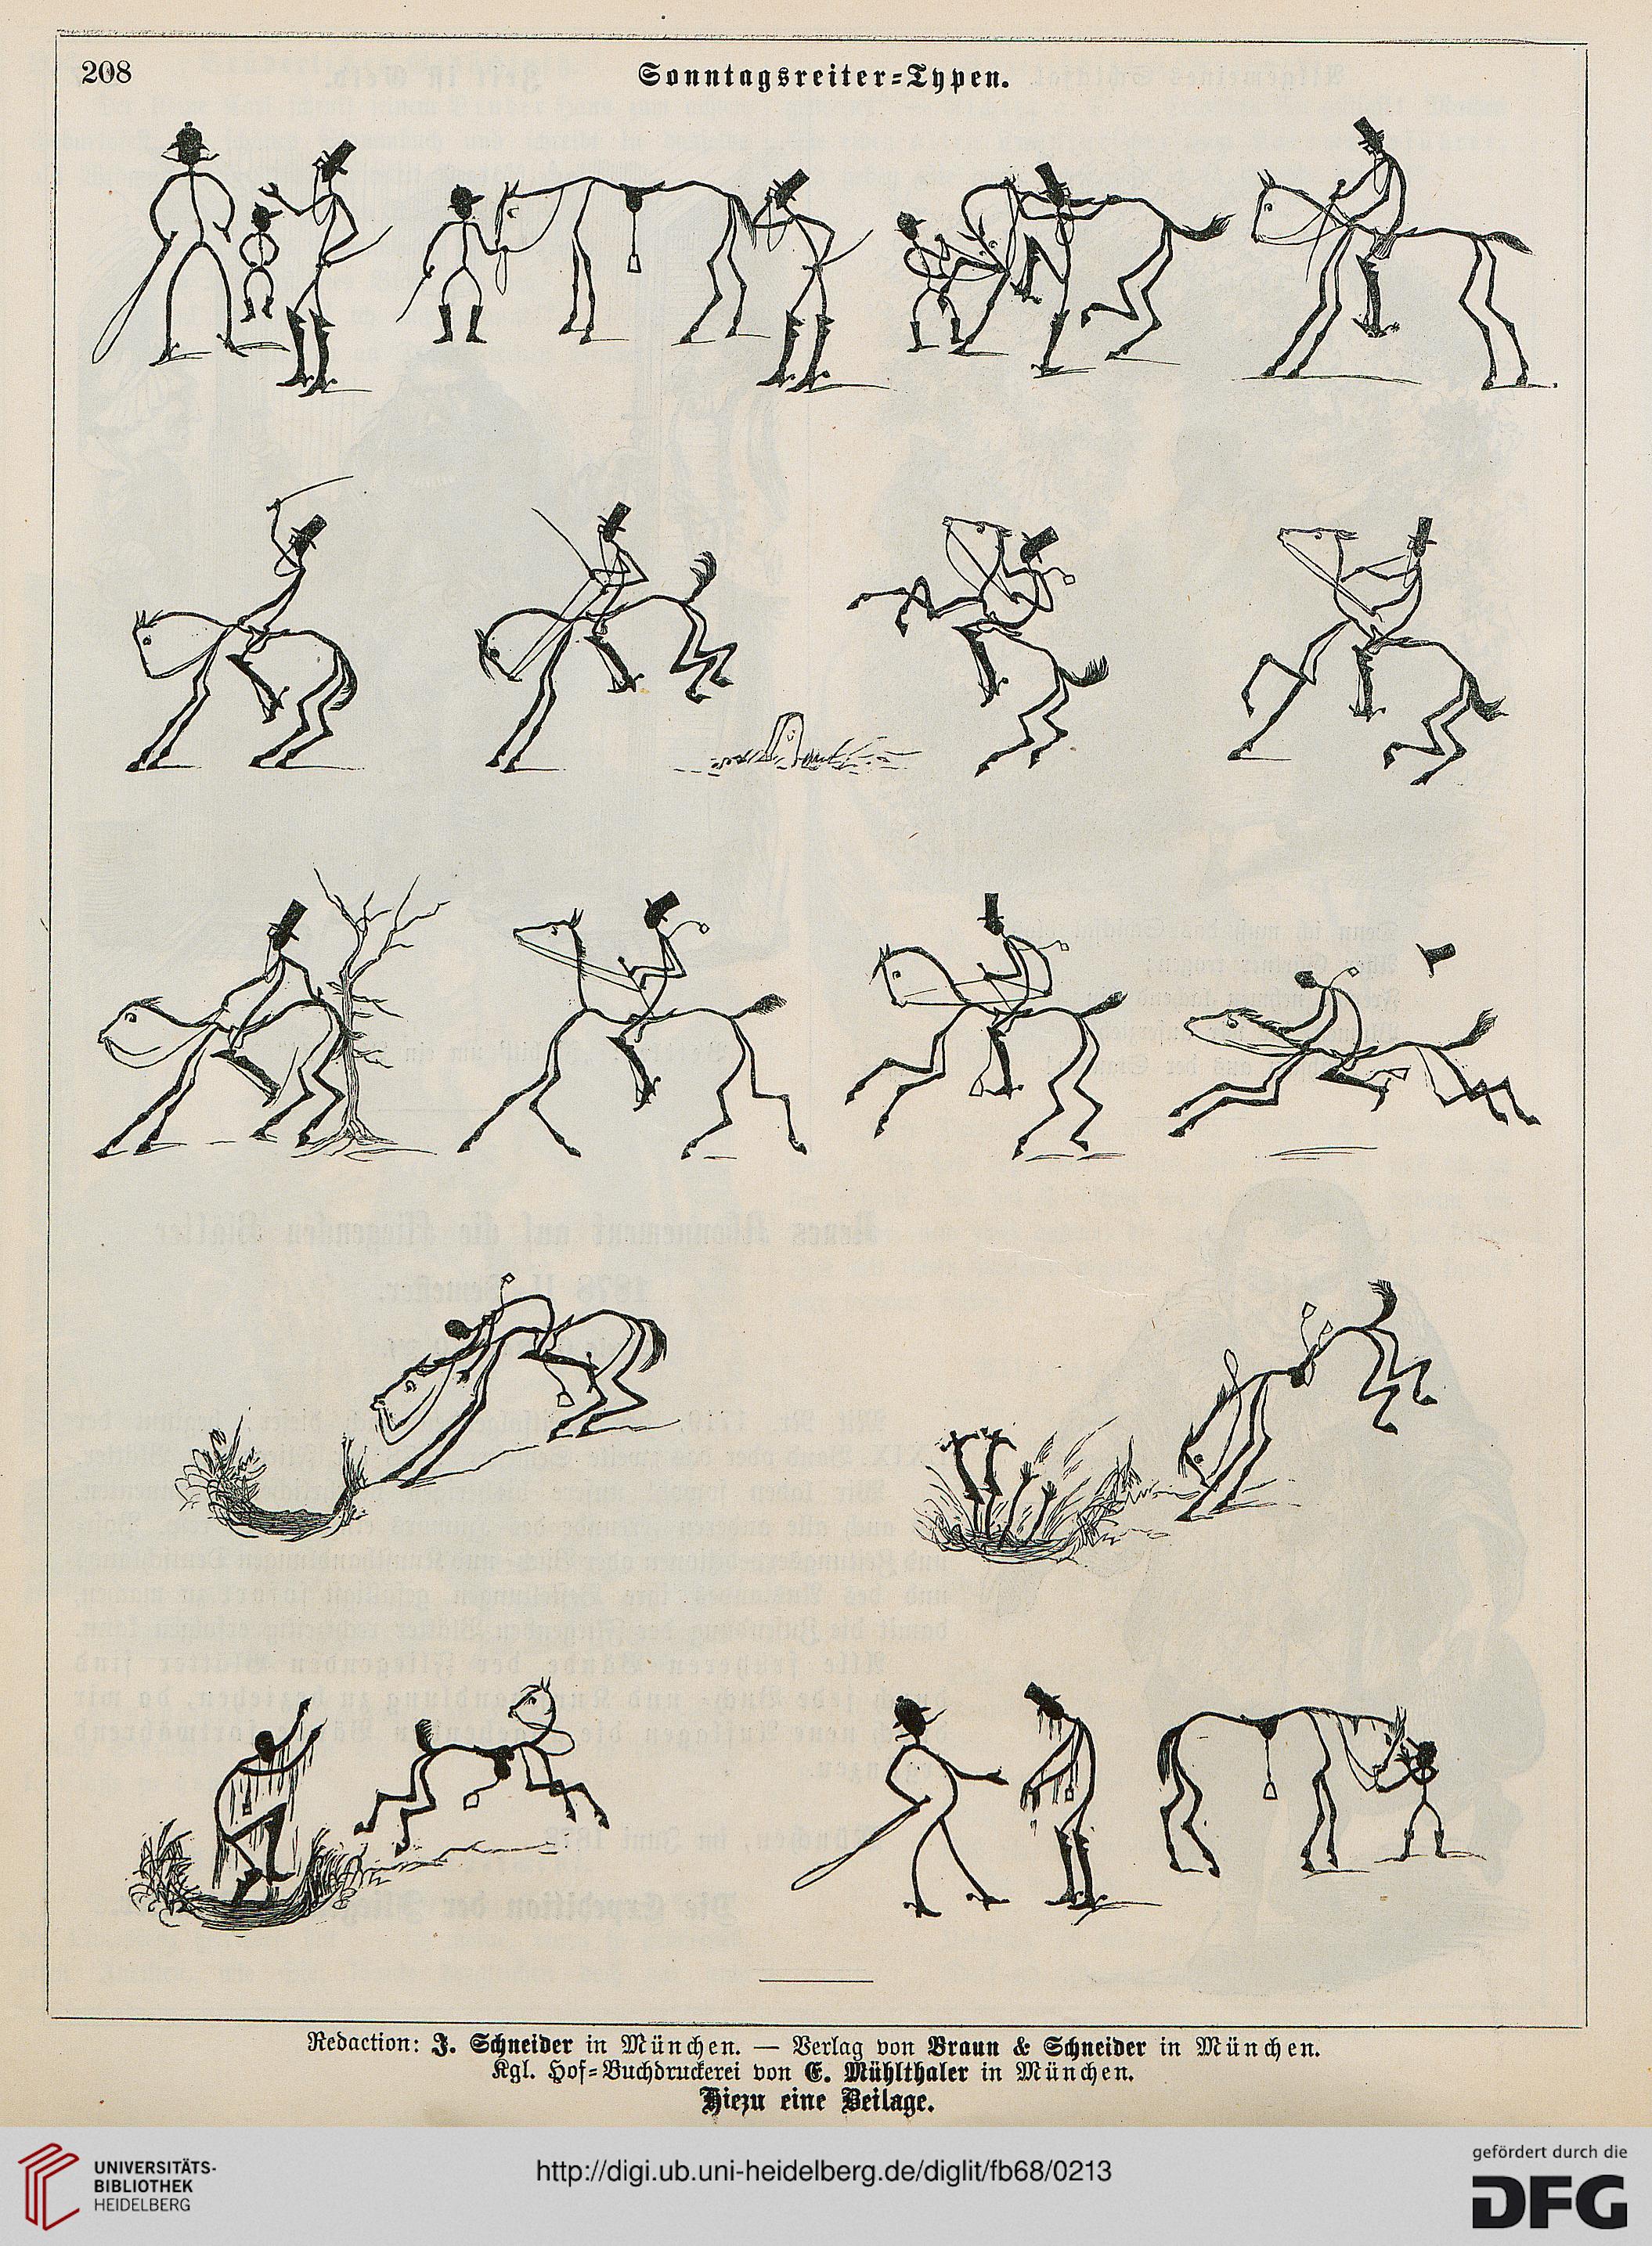 208
Sonntagsreiter-Typen.
Redaction: J. Schneider in München. — Verlag von Braun & Schneider in München.
Kgl. Hof-Buchdruckerei von E. Mühlthaler in München.
Hiezu eine Beilage.
UNIVERSITÄTS-
BIBLIOTHEK
HEIDELBERG
http://digi.ub.uni-heidelberg.de/diglit/fb68/0213
gefördert durch die
DFG